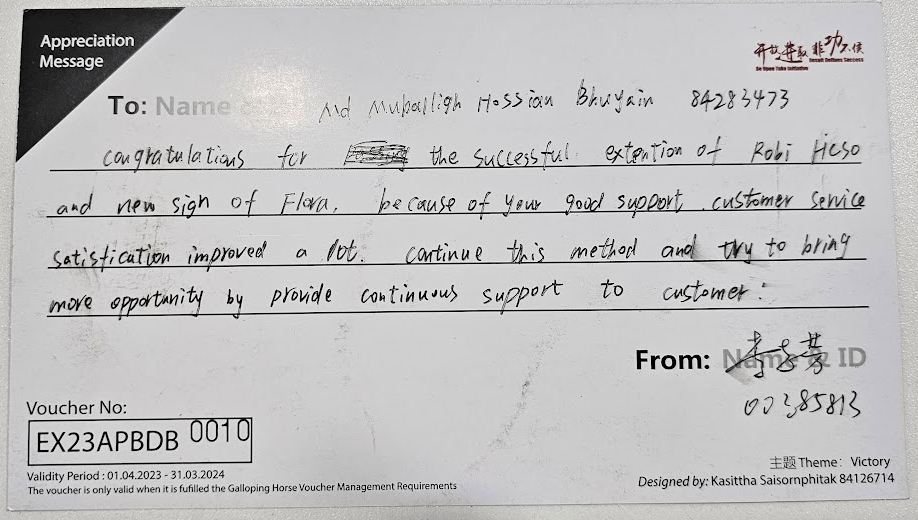 Appreciation
Message
开放进取 非功不侯
Be Open Take Initiative Result Defines Success
To: Name Md Muballigh Hossian Bhuyain 84283473
congratulations for the successful extention of Robi HCSO
and new sign of Flora. because of your good support. customer service
satisfication improved a lot. continue this method and try to bring
more opportunity by provide continuous support to customer.
From: Name & ID
00385813
Voucher No:
EX23APBDB 0010
Validity Period : 01.04.2023 - 31.03.2024
The voucher is only valid when it is fufilled the Galloping Horse Voucher Management Requirements
主题 Theme: Victory
Designed by: Kasittha Saisornphitak 84126714